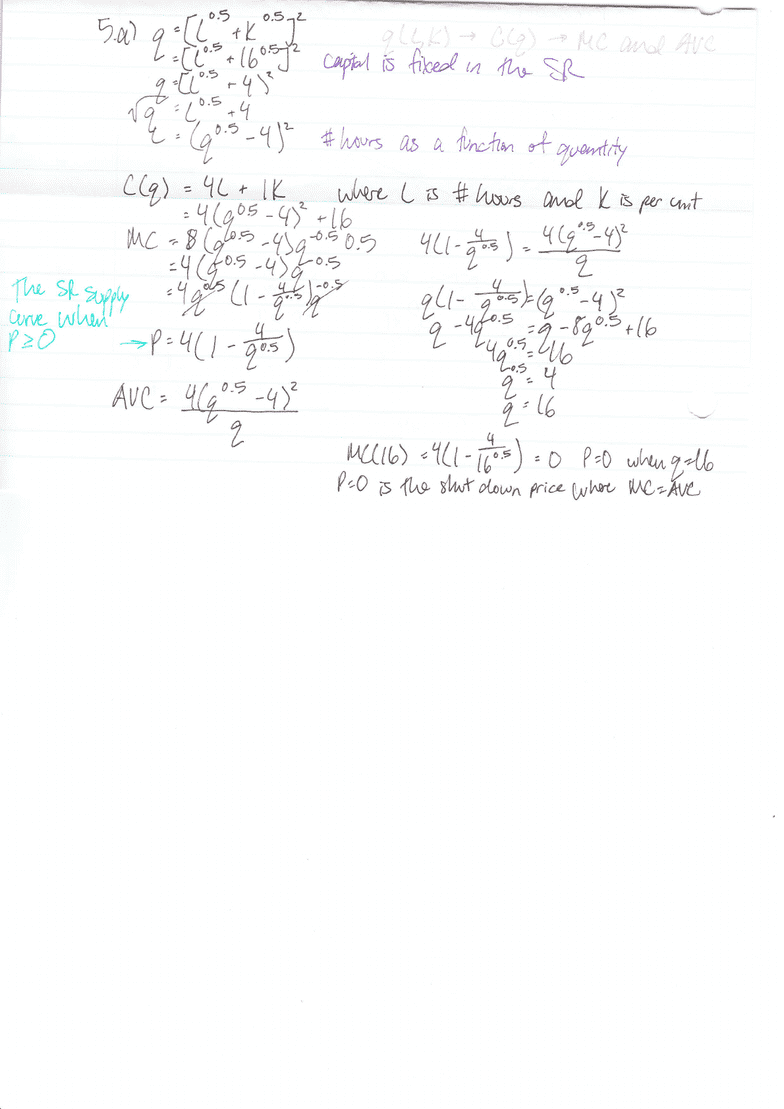 5.a) q = [L^0.5 + K^0.5]^2
q(L,K) → C(q) → MC and AVC
= [L^0.5 + 16^0.5]^2 capital is fixed in the SR
q = [L^0.5 + 4)^2
√q = L^0.5 + 4
L = (q^0.5 - 4)^2 # hours as a function of quantity
C(q) = 4L + 1K where L is # hours and K is per unit
= 4(q^0.5 - 4)^2 + 16
MC = 8(q^0.5 - 4)q^-0.5 0.5
= 4(q^0.5 - 4)q^-0.5
= 4q^0.5 (1 - 4/q^0.5)q^-0.5
The SR supply
curve when
P ≥ 0
→ P = 4(1 - 4/q^0.5)
AVC = 4(q^0.5 - 4)^2 / q
4(1 - 4/q^0.5) = 4(q^0.5 - 4)^2 / q
q(1 - 4/q^0.5) = (q^0.5 - 4)^2
q - 4q^0.5 = q - 8q^0.5 + 16
4q^0.5 = 16
q^0.5 = 4
q = 16
MC(16) = 4(1 - 4/16^0.5) = 0 P=0 when q=16
P=0 is the shut down price where MC = AVC